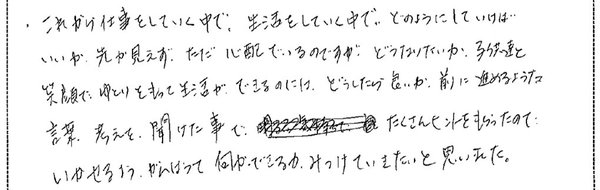 ・これから仕事をしていく中で、生活をしていく中で、どのようにしていけば
いいか、先が見えず、ただ心配でいるのですが、どうなりたいか、子ども達と
笑顔で、ゆとりをもって生活が、できるのには、どうしたら良いか、前に進めるような
言葉、考えを、聞けた事で、たくさんヒントをもらったので、
いかせるよう、がんばって何かできるか、みつけていきたいと思いました。